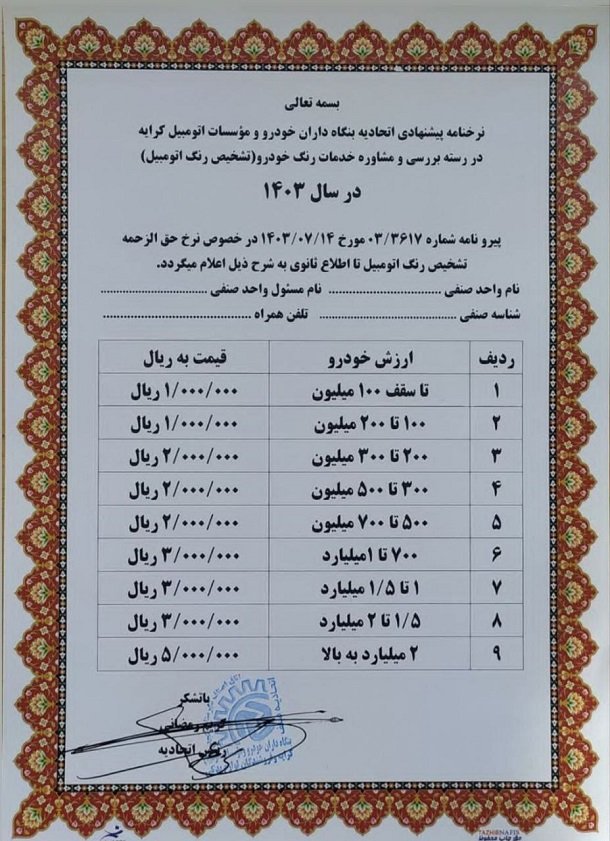 بسمه تعالی
نرخنامه پیشنهادی اتحادیه بنگاه داران خودرو و مؤسسات اتومبیل کرایه
در رسته بررسی و مشاوره خدمات رنگ خودرو(تشخیص رنگ اتومبیل)
در سال ۱۴۰۳
پیرو نامه شماره ۰۳/۳۶۱۷ مورخ ۱۴۰۳/۰۷/۱۴ در خصوص نرخ حق الزحمه
تشخیص رنگ اتومبیل تا اطلاع ثانوی به شرح ذیل اعلام میگردد.
نام واحد صنفی ........................... نام مسئول واحد صنفی ...........................
شناسه صنفی ................................. تلفن همراه .....................................
ردیف ارزش خودرو قیمت به ریال
۱ تا سقف ۱۰۰ میلیون ۱/۰۰۰/۰۰۰ ریال
۲ ۱۰۰ تا ۲۰۰ میلیون ۱/۰۰۰/۰۰۰ ریال
۳ ۲۰۰ تا ۳۰۰ میلیون ۲/۰۰۰/۰۰۰ ریال
۴ ۳۰۰ تا ۵۰۰ میلیون ۲/۰۰۰/۰۰۰ ریال
۵ ۵۰۰ تا ۷۰۰ میلیون ۲/۰۰۰/۰۰۰ ریال
۶ ۷۰۰ تا ۱میلیارد ۳/۰۰۰/۰۰۰ ریال
۷ ۱ تا ۱/۵ میلیارد ۳/۰۰۰/۰۰۰ ریال
۸ ۱/۵ تا ۲ میلیارد ۳/۰۰۰/۰۰۰ ریال
۹ ۲ میلیارد به بالا ۵/۰۰۰/۰۰۰ ریال
باتشکر
رمضانی
رئیس اتحادیه
TAZHIBNAFIS
حق چاپ محفوظ